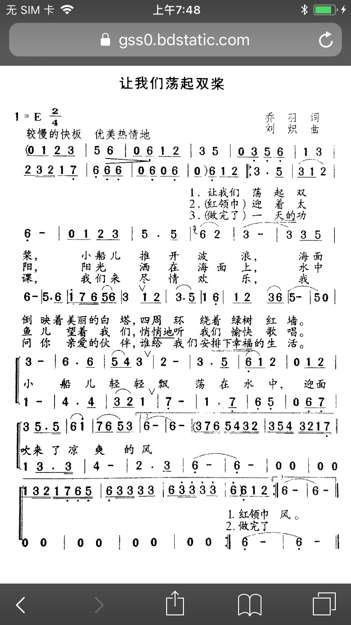 无 SIM 卡 上午7:48
gss0.bdstatic.com
让我们荡起双桨
1=E 2/4
乔 羽 词
刘 炽 曲
较慢的快板 优美热情地
(0 1 2 3 | 5 6 | 0 6 1 2 | 3 5 | 0 3 5 6 | 1 3 |
2 3 2 1 7 | 6 6 6 | 0 6 0 6 | 0 ) 6 1 2 |: 3 . 5 | 3 1 2 |
1. 让我们 荡 起 双
2.(红领巾) 迎 着 太
3.(做完了) 一 天 的 功
6 - | 0 1 2 3 | 2 . 5 | 6 2 | 3 - | 3 3 5 |
桨, 小船儿 推 开 波 浪, 海面
阳, 阳光 洒 在 海 面 上, 水中
课, 我们来 尽 情 欢 乐, 我
6 - | 5 . 6 | 1 7 6 5 6 | 3 1 2 | 3 . 5 | 1 6 | 1 2 | 3 6 5 - | 5 0 |
倒 映着美丽的白 塔,四周 环 绕着 绿树 红 墙。
鱼 儿 望着 我 们,悄悄地听 我们 愉快 歌 唱。
问 你 亲爱的伙 伴,谁给 我们安排下幸福的生 活。
3 - | 6 . 6 | 5 4 3 | 2 - | 2 . 3 | 6 1 2 | 0 1 2 |
小 船 儿 轻 轻 飘 荡 在 水 中, 迎面
1 - | 4 . 4 | 3 2 1 | 7 - | 7 . 1 | 6 | 0 6 7 |
3 5 . 5 | 6 1 | 7 6 5 3 | 6 - | 6 - | (3 7 6 5 4 3 2 | 3 5 4 3 2 1 7 |
吹来 了 凉 爽 的 风
1 3 . 3 | 4 - | 2 . 3 | 6 - | 6 - | 0 0 | 0 0 |
1 3 2 1 7 6 5 | 6 3 3 3 3 | 6 3 3 3 3 | 6 3 3 3 3 | 6 6 1 2 :| 6 - | 6 - |
1. 红领巾 风。
2. 做完了
0 0 | 0 0 | 0 0 | 0 0 | 0 0 :| 6 - | 6 - |